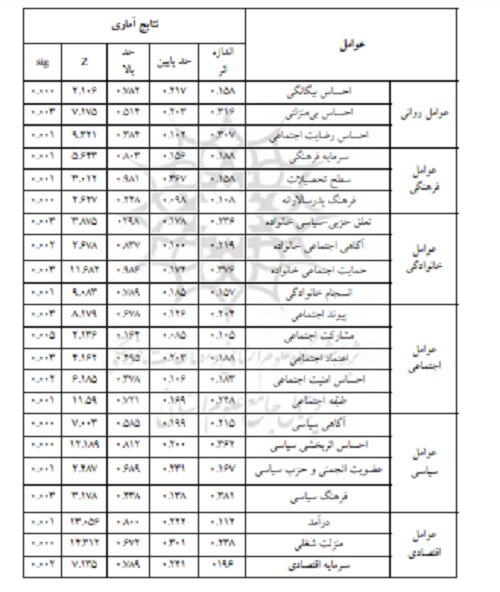 عوامل نتایج آماری
اندازه اثر حد پایین حد بالا Z sig
عوامل روانی
احساس بیگانگی ۰.۱۵۸ ۰.۲۱۷ ۰.۷۸۲ ۲.۱۰۶ ۰.۰۰۰
احساس بی‌منزلتی ۰.۳۱۶ ۰.۲۰۳ ۰.۵۱۴ ۷.۱۷۵ ۰.۰۰۳
احساس رضایت اجتماعی ۰.۳۰۷ ۰.۱۰۲ ۰.۳۸۴ ۹.۳۲۱ ۰.۰۰۱
عوامل فرهنگی
سرمایه فرهنگی ۰.۱۸۸ ۰.۱۵۶ ۰.۸۰۳ ۵.۶۴۳ ۰.۰۰۱
سطح تحصیلات ۰.۱۵۸ ۰.۳۶۷ ۰.۹۸۱ ۳.۰۱۲ ۰.۰۰۱
فرهنگ پدرسالارانه ۰.۱۰۸ ۰.۰۹۸ ۰.۲۲۸ ۲.۶۴۷ ۰.۰۰۰
عوامل خانوادگی
تعلق حزبی-سیاسی خانواده ۰.۲۳۶ ۰.۱۷۸ ۰.۲۹۸ ۳.۸۷۵ ۰.۰۰۳
آگاهی اجتماعی خانواده ۰.۲۱۹ ۰.۱۰۰ ۰.۸۳۷ ۲.۶۷۸ ۰.۰۰۲
حمایت اجتماعی خانواده ۰.۳۷۶ ۰.۱۷۲ ۰.۹۸۶ ۱۱.۶۸۲ ۰.۰۰۳
انسجام خانوادگی ۰.۱۵۷ ۰.۱۸۵ ۰.۷۸۹ ۹.۰۸۳ ۰.۰۰۱
عوامل اجتماعی
پیوند اجتماعی ۰.۲۰۴ ۰.۱۲۶ ۰.۶۷۸ ۸.۱۷۹ ۰.۰۰۳
مشارکت اجتماعی ۰.۱۰۵ ۰.۰۸۵ ۰.۱۶۴ ۲.۱۳۶ ۰.۰۰۵
اعتماد اجتماعی ۰.۱۸۸ ۰.۲۰۲ ۰.۲۹۵ ۴.۱۶۲ ۰.۰۰۳
احساس امنیت اجتماعی ۰.۱۸۳ ۰.۱۰۶ ۰.۳۷۸ ۶.۱۸۵ ۰.۰۰۲
طبقه اجتماعی ۰.۲۲۸ ۰.۱۶۹ ۰.۷۲۱ ۱۱.۵۹ ۰.۰۰۱
عوامل سیاسی
آگاهی سیاسی ۰.۲۱۵ ۰.۱۹۹ ۰.۵۸۵ ۷.۰۰۳ ۰.۰۰۰
احساس اثربخشی سیاسی ۰.۳۶۲ ۰.۲۰۰ ۰.۸۱۲ ۱۲.۱۸۹ ۰.۰۰۰
عضویت انجمنی و حزب سیاسی ۰.۱۶۷ ۰.۲۳۱ ۰.۶۸۹ ۲.۴۸۷ ۰.۰۰۱
فرهنگ سیاسی ۰.۳۸۱ ۰.۱۳۸ ۰.۴۳۸ ۳.۱۷۸ ۰.۰۰۳
عوامل اقتصادی
درآمد ۰.۱۱۲ ۰.۲۲۲ ۰.۸۰۰ ۱۳.۰۵۶ ۰.۰۰۱
منزلت شغلی ۰.۲۳۸ ۰.۳۰۱ ۰.۶۷۲ ۱۴.۳۱۲ ۰.۰۰۰
سرمایه اقتصادی ۰.۱۹۶ ۰.۲۴۱ ۰.۷۸۹ ۷.۱۳۵ ۰.۰۰۲